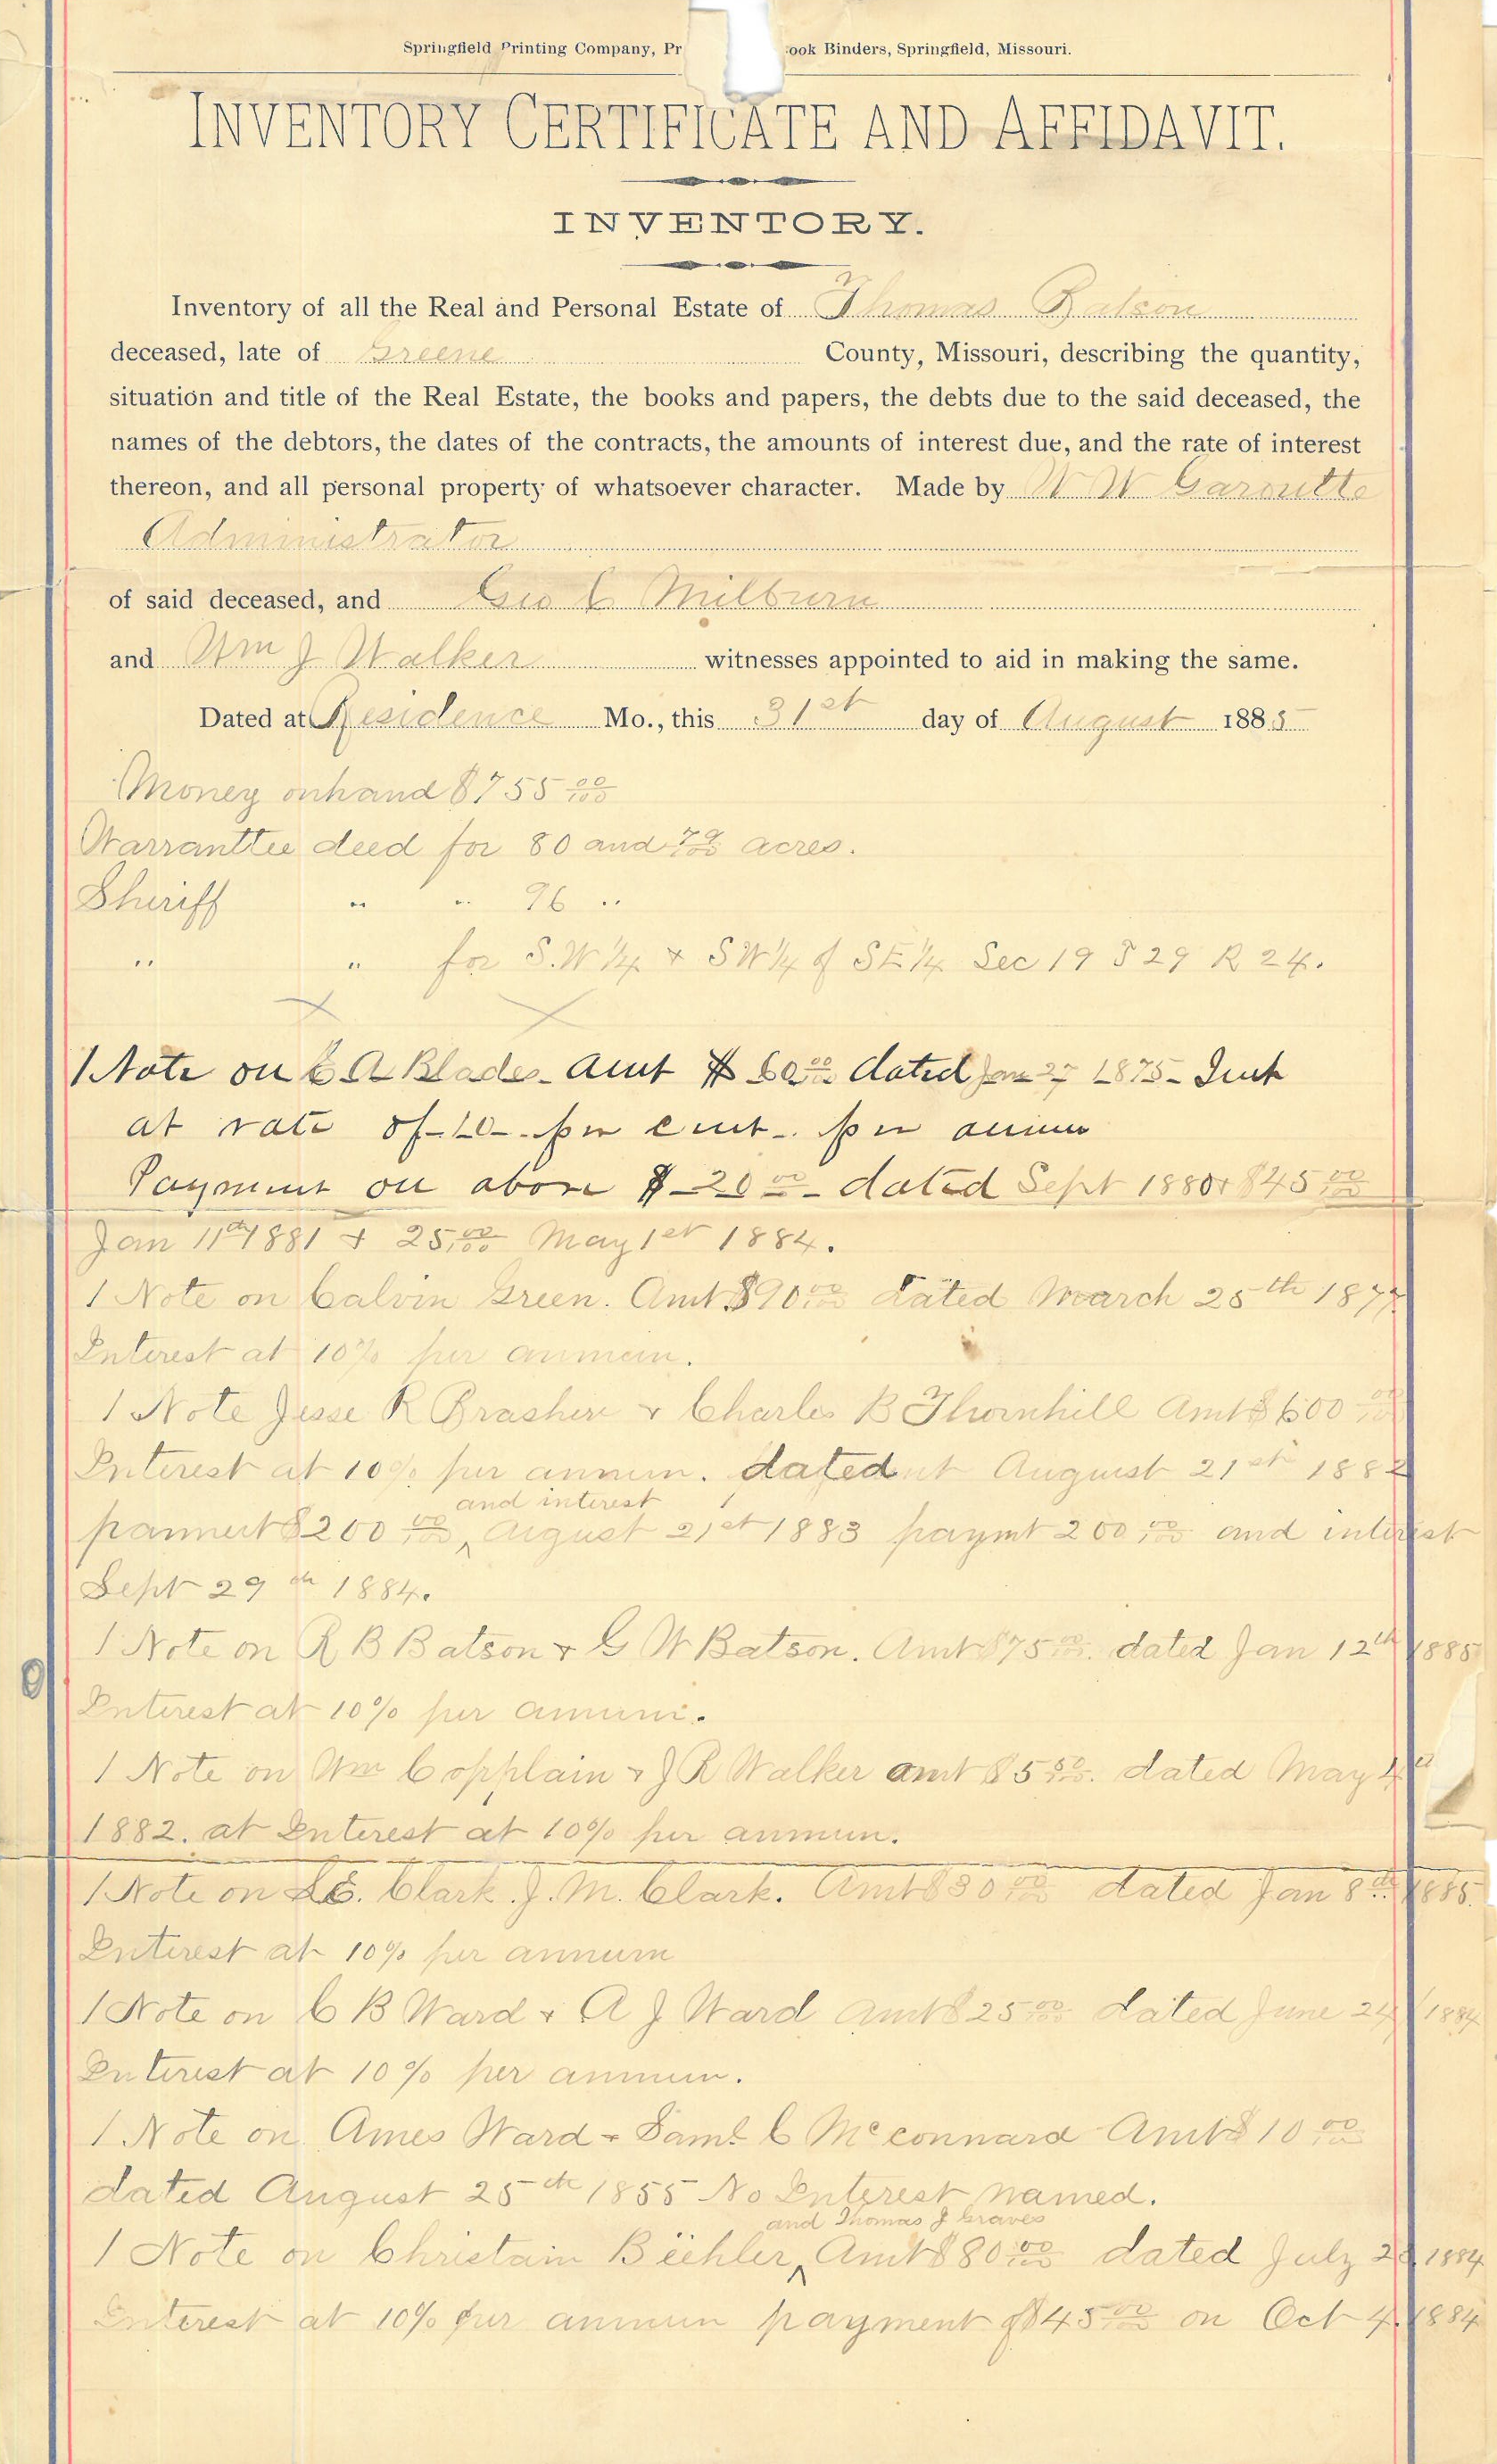 Springfield Printing Company, Pr ook Binders, Springfield, Missouri.
INVENTORY CERTIFICATE AND AFFIDAVIT.
INVENTORY.
Inventory of all the Real and Personal Estate of Thomas Batson
deceased, late of Greene County, Missouri, describing the quantity,
situation and title of the Real Estate, the books and papers, the debts due to the said deceased, the
names of the debtors, the dates of the contracts, the amounts of interest due, and the rate of interest
thereon, and all personal property of whatsoever character. Made by W W Garoutte
Administrator
of said deceased, and Geo C Milburn
and Wm J Walker witnesses appointed to aid in making the same.
Dated at Residence Mo., this 31st day of August 1885
Money onhand $755 00/100
Warranttee deed for 80 and 79/100 acres.
Sheriff " " 96 "
" " for S.W 1/4 & SW 1/4 of SE 1/4 Sec 19 T 29 R 24.
1 Note on C A Blades Amt $ 60 00/100 dated Jan 27 1875 Int
at rate of 10 per cent per annum
Payment on above $ 20 00 dated Sept 1880 & $45 00/100
Jan 11th 1881 & 25 00/100 May 1st 1884.
1 Note on Calvin Green. Amt $90 00/100 dated March 25th 1877
Interest at 10% per annum.
1 Note Jesse R Brashire & Charles B Thornhill Amt $600 00/100
Interest at 10% per annum. dated August 21st 1882
panment $200 00/100 and interest August 21st 1883 paymt 200 00/100 and interest
Sept 29th 1884.
1 Note on R B Batson & G W Batson. Amt $75 00/100. dated Jan 12th 1885
Interest at 10% per annum.
1 Note on Wm Copplain & J R Walker amt $5 50/100. dated May 4th
1882. at Interest at 10% per annum.
1 Note on L C. Clark J. M. Clark. Amt $30 00/100 dated Jan 8th 1885.
Interest at 10% per annum
1 Note on C B Ward & A J Ward Amt $25 00/100 dated June 24 1884
Interest at 10% per annum.
1 Note on Ames Ward & Saml C McConnard Amt $10 00/100
dated August 25th 1855 No Interest named.
1 Note on Christain Biehler and Thomas J Graves Amt $80 00/100 dated July 1884
Interest at 10% per annum payment of $45 00/100 on Oct 4. 1884